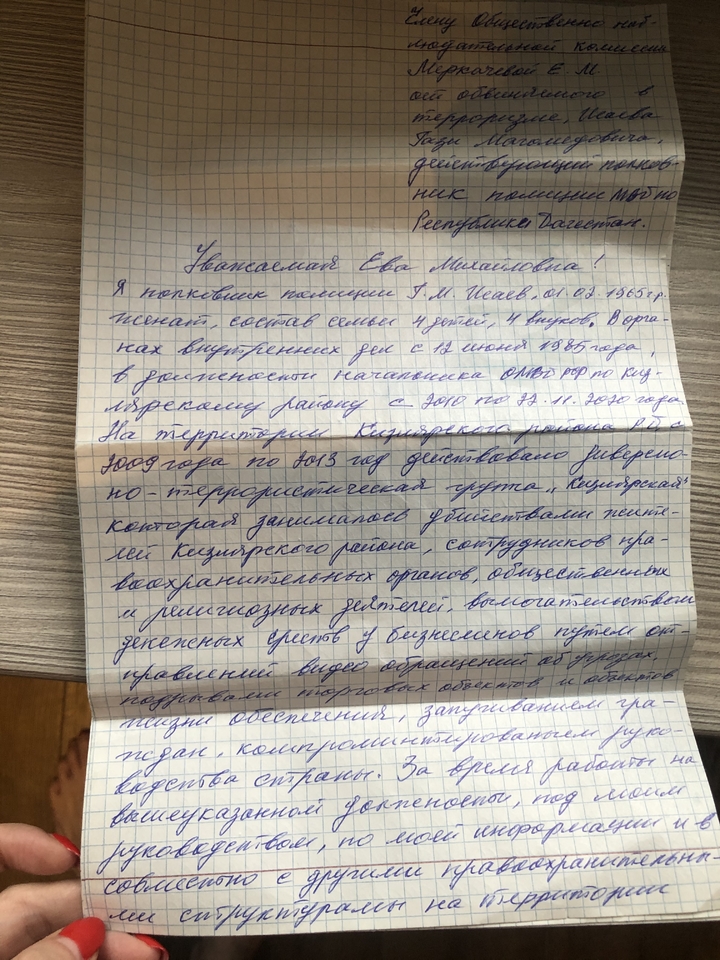 Члену Общественно наб-
людательной комиссии
Меркачевой Е. М.
от обвиняемого в
терроризме, Исаева
Гази Магомедовича,
действующий полков-
ник полиции МВД по
Республики Дагестан.
Уважаемая Ева Михайловна!
Я полковник полиции Г. М. Исаев, 01.07.1965 г.р.
женат, состав семьи 4 детей, 4 внуков. В орга-
нах внутренних дел с 12 июня 1985 года,
в должности начальника ОМВД РФ по Киз-
лярскому району с 2010 по 22.11.2020 года
На территории Кизлярского района Р.Д. с
2009 года по 2013 год действовало диверсио-
но-террористическая группа „Кизлярская"
которая занималось убийствами жите-
лей Кизлярского района, сотрудников пра-
воохранительных органов, общественных
и религиозных деятелей, вымогательством
денежных средств у бизнесменов путем от-
правлений видео обращений об угрозах,
подрывами торговых объектов и объектов
жизни обеспечения, запугиванием гра-
ждан, компроминтированием руко-
водства страны. За время работы на
вышеуказанной должности, под моим
руководством, по моей информации и в
совместно с другими правоохранительны-
ми структурамы на территории